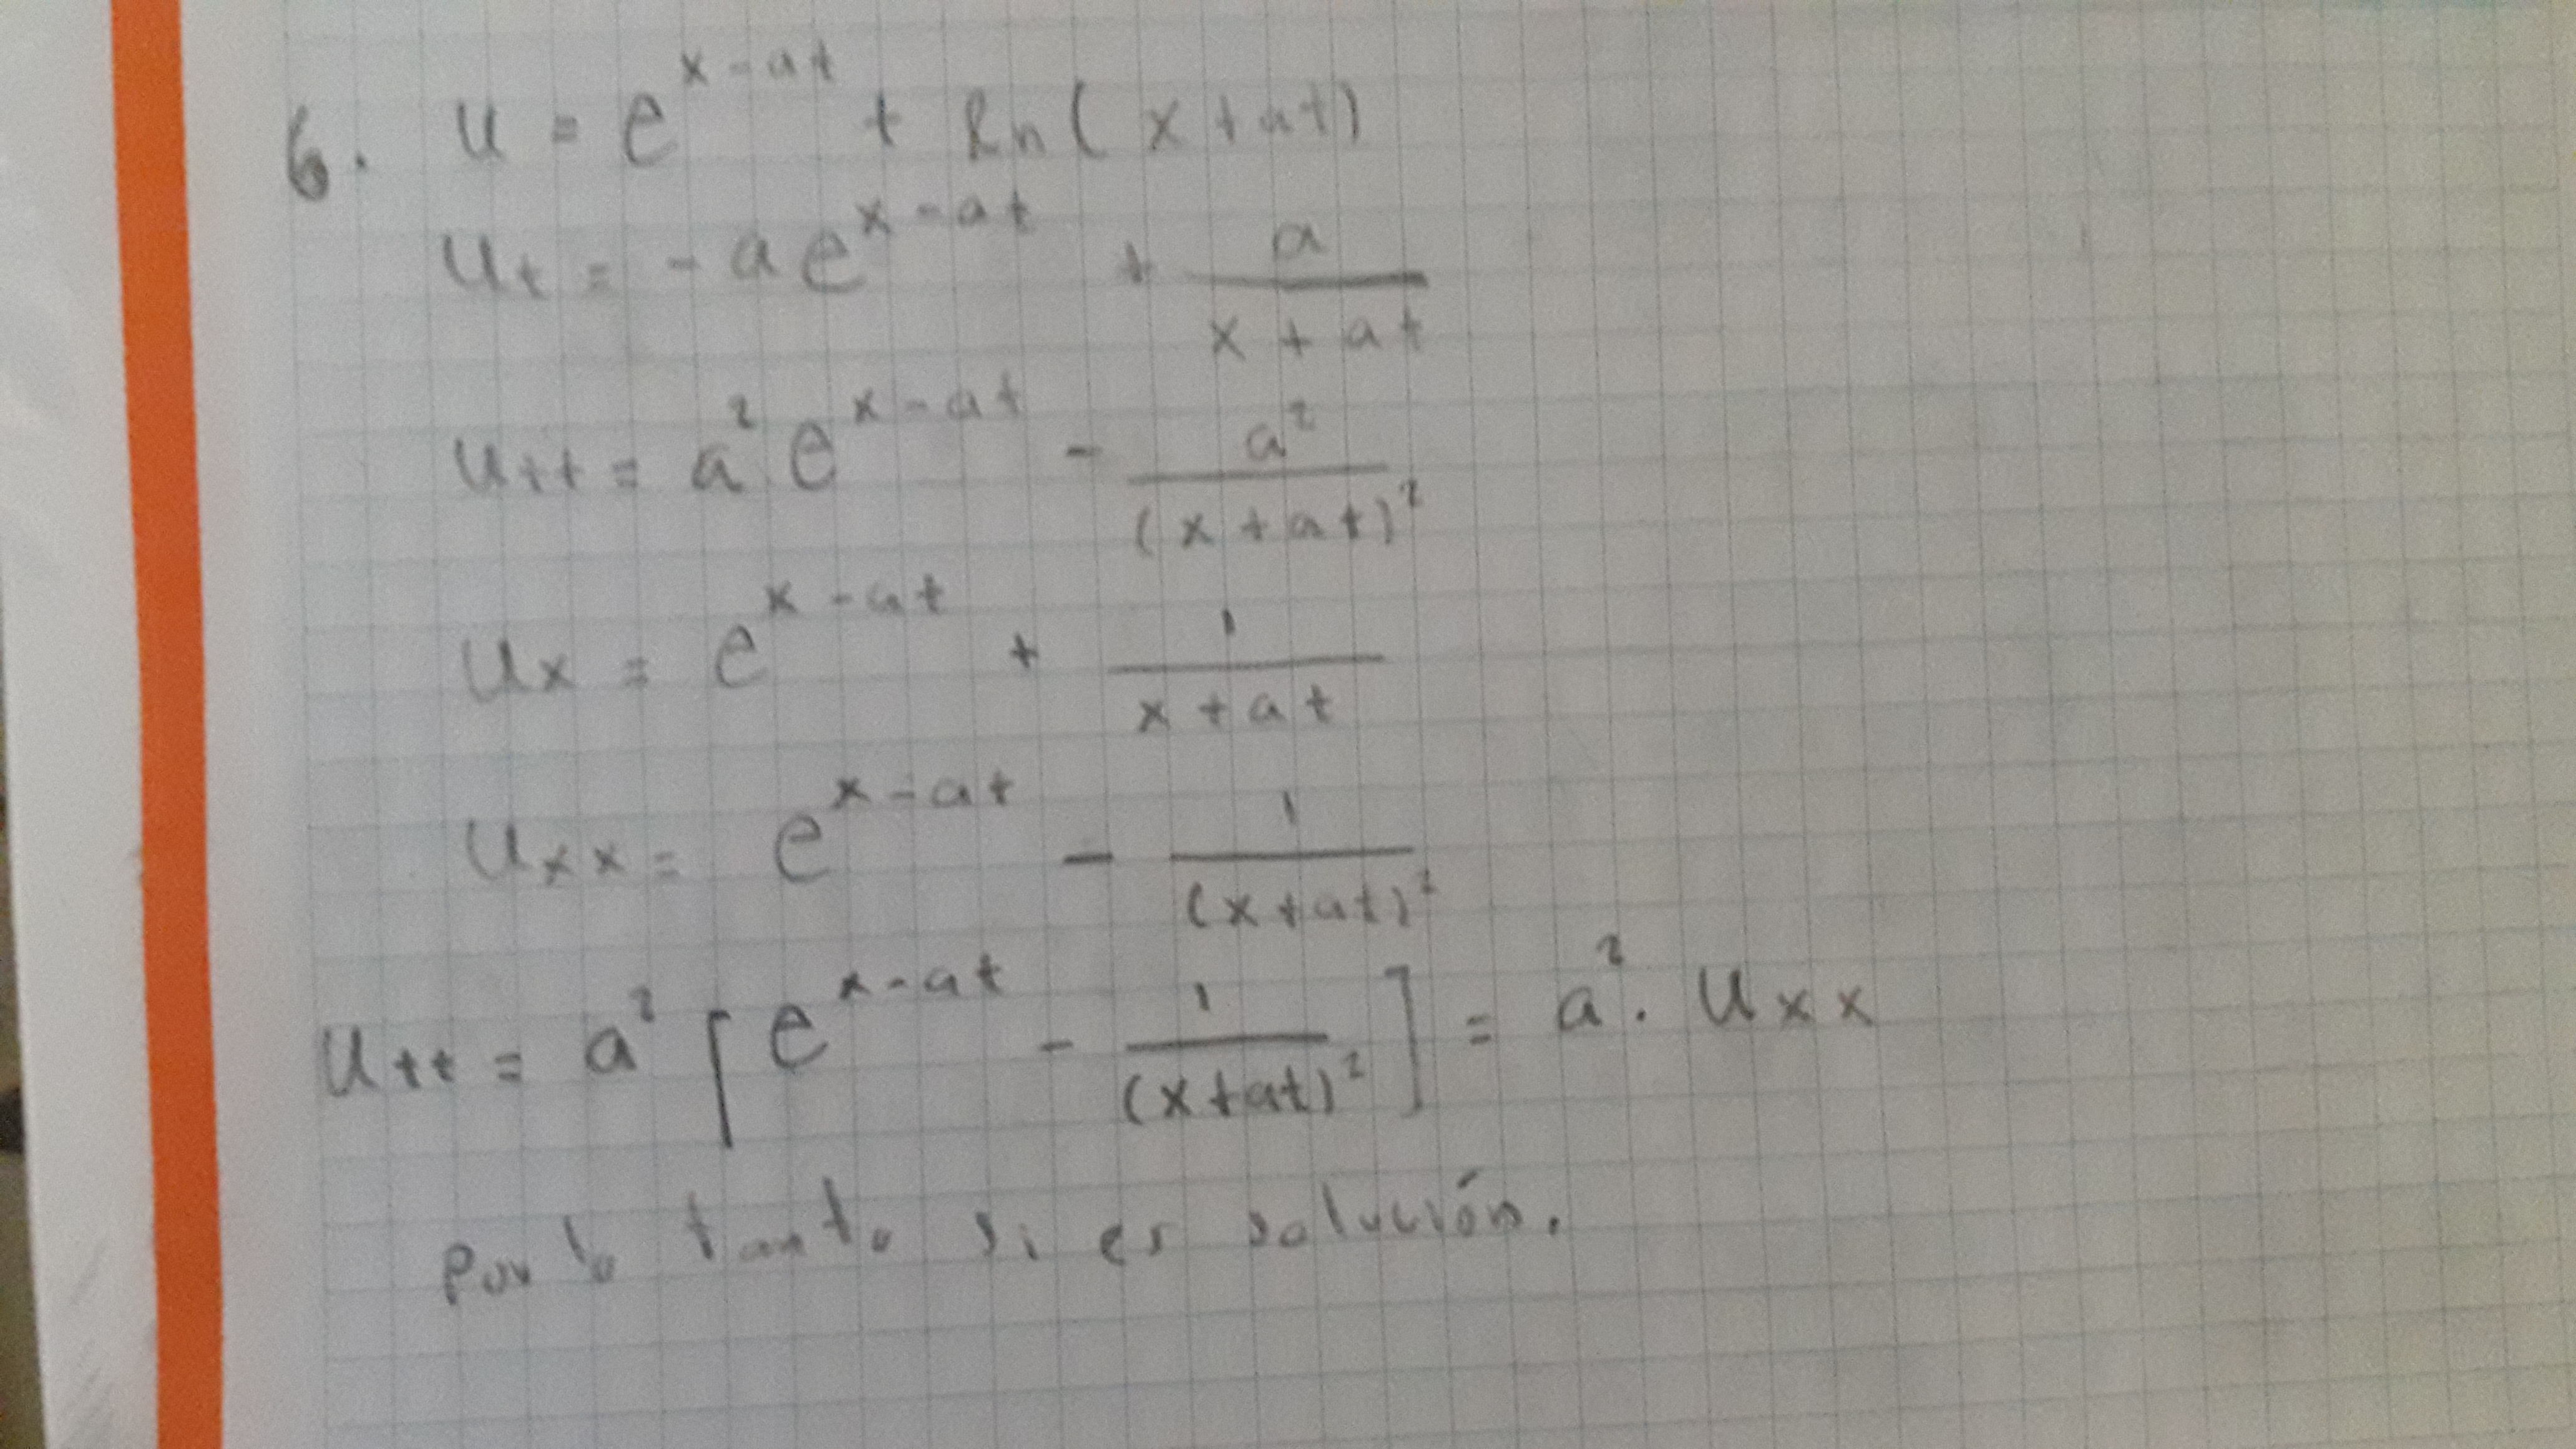 6. u = e^{x-at} + ln(x+at)
u_t = -ae^{x-at} + \frac{a}{x+at}
u_{tt} = a^2 e^{x-at} - \frac{a^2}{(x+at)^2}
u_x = e^{x-at} + \frac{1}{x+at}
u_{xx} = e^{x-at} - \frac{1}{(x+at)^2}
u_{tt} = a^2 [e^{x-at} - \frac{1}{(x+at)^2}] = a^2 \cdot u_{xx}
Por lo tanto si es solución.